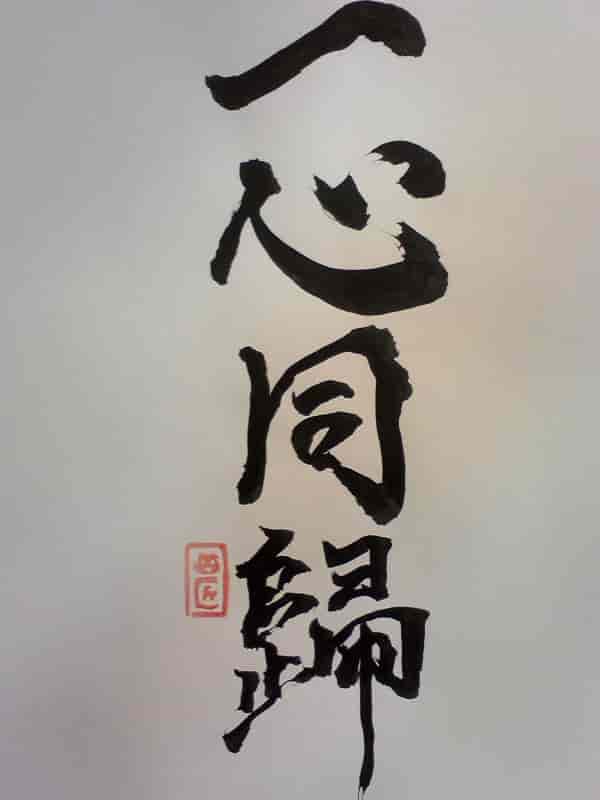 一心同歸